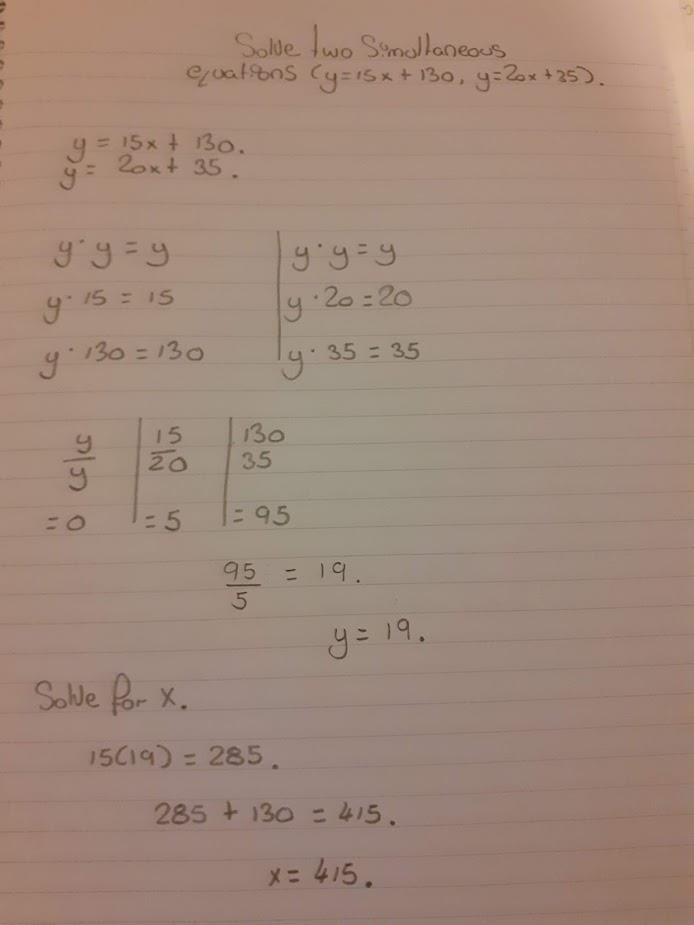 Solve two Simultaneous
equations (y=15x + 130, y=20x+35).
y = 15x + 130.
y = 20x + 35.
y · y = y | y · y = y
y · 15 = 15 | y · 20 = 20
y · 130 = 130 | y · 35 = 35
y | 15 | 130
y | 20 | 35
= 0 | = 5 | = 95
95 = 19.
5
y = 19.
Solve for x.
15(19) = 285.
285 + 130 = 415.
x = 415.